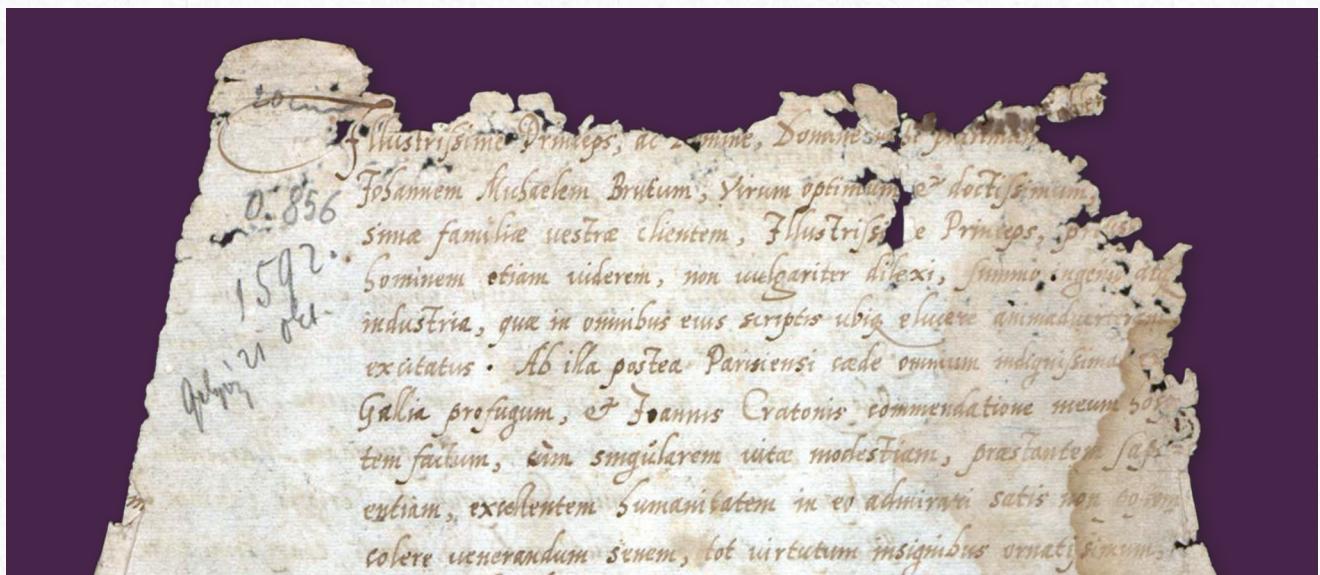 Illustrissime Princeps, ac Domine, Domine
0. 856
Johannem Michaelem Brutum, Virum optimum & doctissimum,
simæ familiæ vestræ clientem, Illustrissi e Princeps,
1592.
hominem etiam viderem, non vulgariter dilexi, summo ingenio atq
21 oct.
industria, quæ in omnibus eius scriptis ubiq elucere animadverterem
excitatus. Ab illa postea Parisiensi cæde omnium indignissima
Gallia profugum, & Joannis Cratonis commendatione meum hos
tem factum, cùm singularem vitæ modestiam, præstantem sapi
entiam, excellentem humanitatem in eo admirari satis non
colere venerandum senem, tot virtutum insignibus ornatissimum,